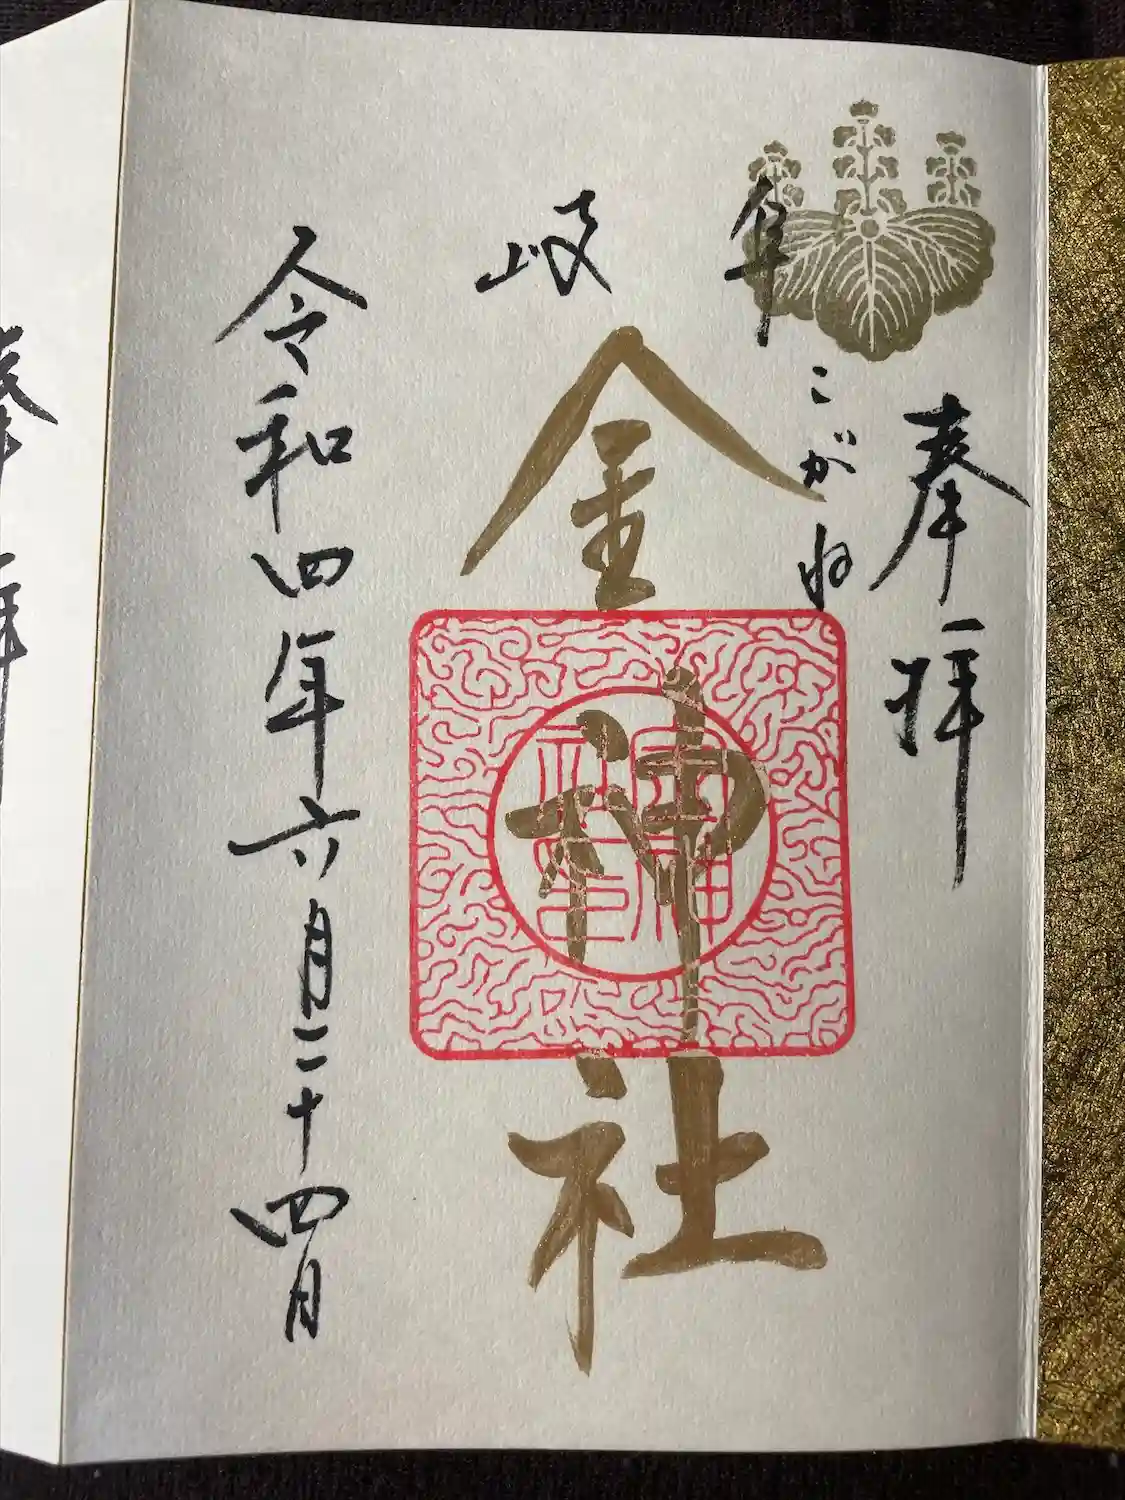 奉拝
岐阜
こがね
金神社
令和四年六月二十四日